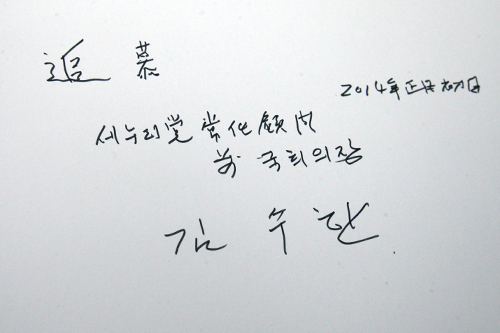 追慕
2014年 正月
새누리党 常任顧問
前 국회의장
김수한